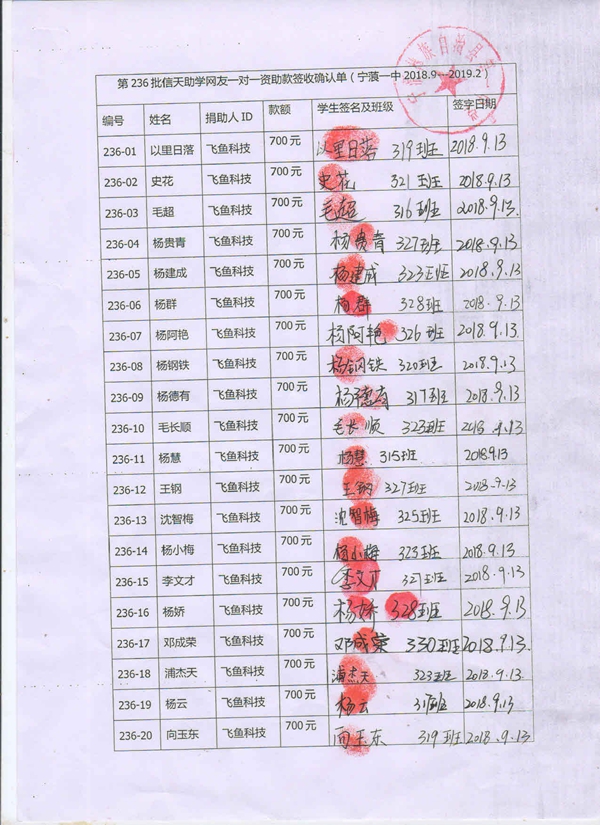 族自治县
第 236 批信天助学网友一对一资助款签收确认单（宁蒗一中 2018.9---2019.2）
编号 姓名 捐助人 ID 款额 学生签名及班级 签字日期
236-01 以里日落 飞鱼科技 700 元 以里日落 319班 2018.9.13
236-02 史花 飞鱼科技 700 元 史花 321班 2018.9.13
236-03 毛超 飞鱼科技 700 元 毛超 316班 2018.9.13.
236-04 杨贵青 飞鱼科技 700 元 杨贵青 327班 2018.9.13
236-05 杨建成 飞鱼科技 700 元 杨建成 323班 2018.9.13
236-06 杨群 飞鱼科技 700 元 杨群 328班 2018.9.13
236-07 杨阿艳 飞鱼科技 700 元 杨阿艳 326班 2018.9.13
236-08 杨钢铁 飞鱼科技 700 元 杨钢铁 320班 2018.9.13
236-09 杨德有 飞鱼科技 700 元 杨德有 317班 2018.9.13
236-10 毛长顺 飞鱼科技 700 元 毛长顺 323班 2018.9.13
236-11 杨慧 飞鱼科技 700 元 杨慧 315班 2018.9.13
236-12 王钢 飞鱼科技 700 元 王钢 327班 2018.9.13
236-13 沈智梅 飞鱼科技 700 元 沈智梅 325班 2018.9.13
236-14 杨小梅 飞鱼科技 700 元 杨小梅 323班 2018.9.13
236-15 李文才 飞鱼科技 700 元 李文才 327班 2018.9.13
236-16 杨娇 飞鱼科技 700 元 杨娇 328班 2018.9.13
236-17 邓成荣 飞鱼科技 700 元 邓成荣 330班 2018.9.13
236-18 浦杰天 飞鱼科技 700 元 浦杰天 323班 2018.9.13
236-19 杨云 飞鱼科技 700 元 杨云 317班 2018.9.13
236-20 向玉东 飞鱼科技 700 元 向玉东 319班 2018.9.13